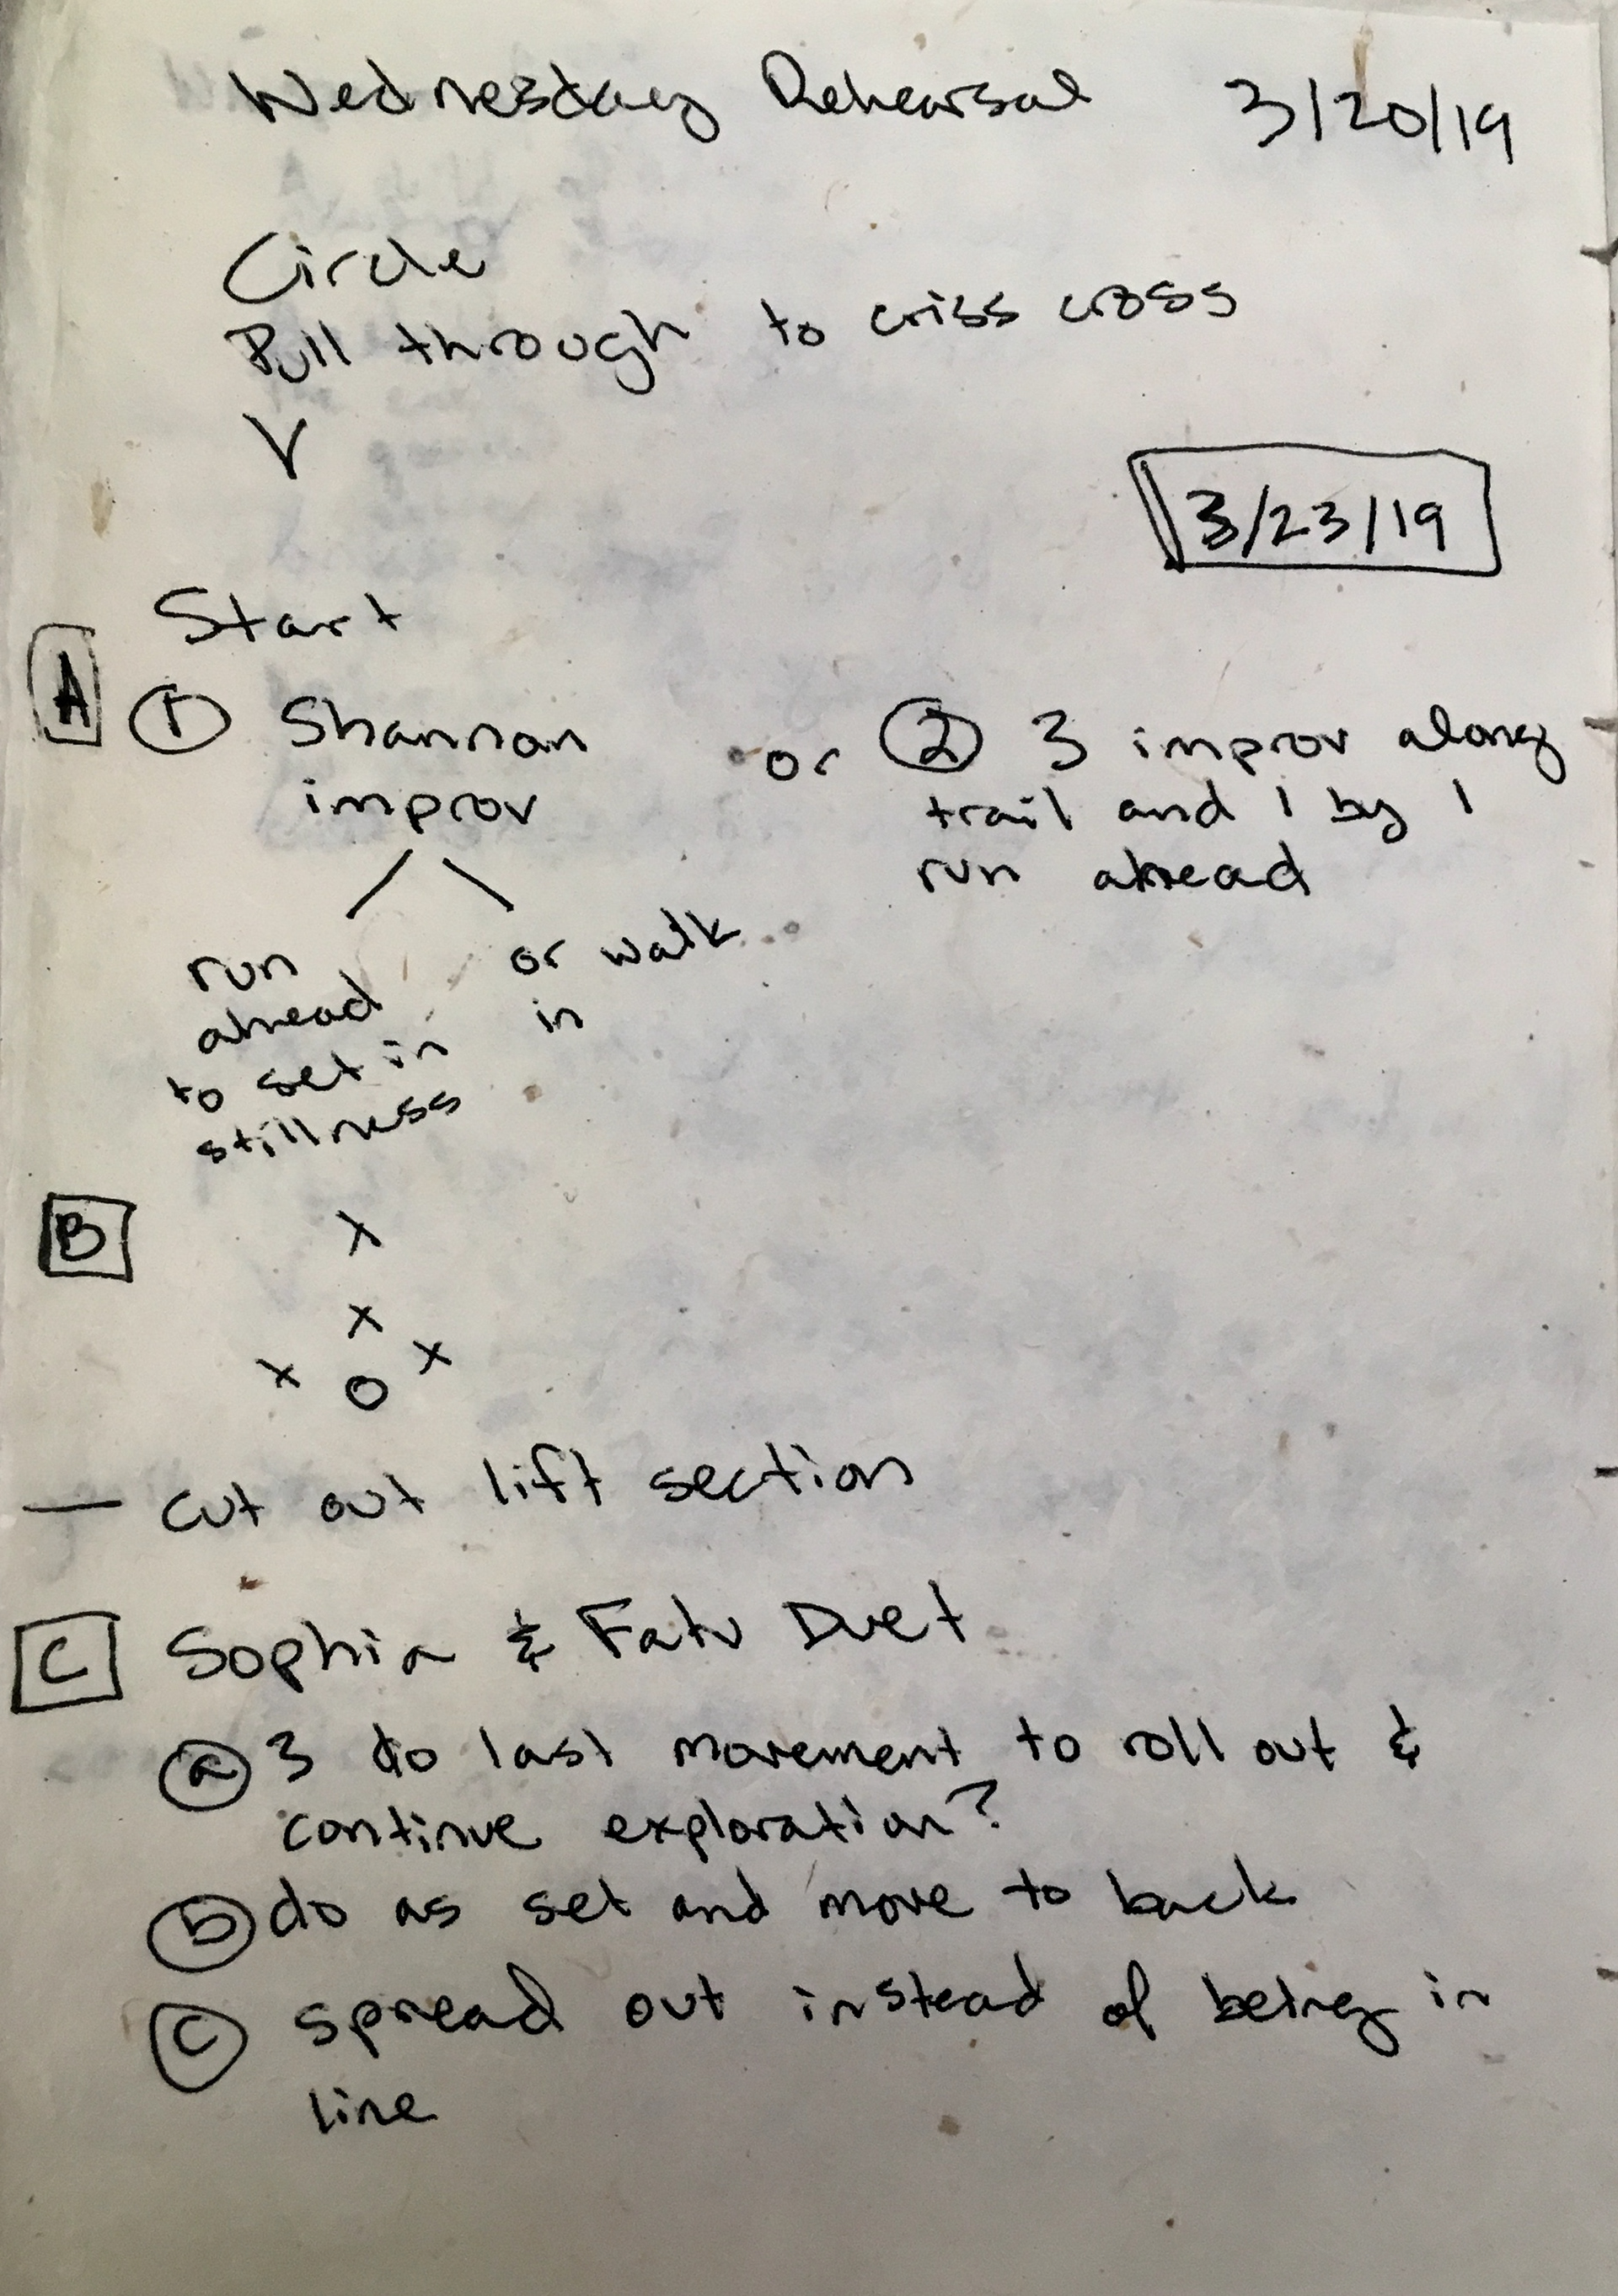 Wednesday Rehearsal 3/20/19
Circle
Pull through to criss cross
V
3/23/19
Start
A
① Shannon or ② 3 improv along
improv trail and 1 by 1
run ahead
run or walk
ahead in
to set in
stillness
B
X
X
X O X
— cut out lift section
C Sophia & Fatu Duet
ⓐ 3 do last movement to roll out &
continue exploration?
ⓑ do as set and move to back
ⓒ spread out instead of being in
line